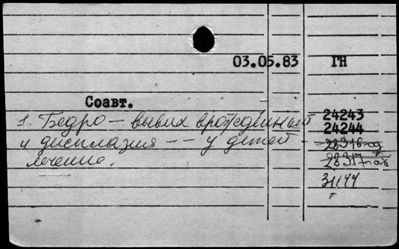 03.05.83 ГН
Соавт.
1. Бедро - вывих врожденный 24243
24244
и дисплазия -- у детей - 28316
лечение. 28317
31144